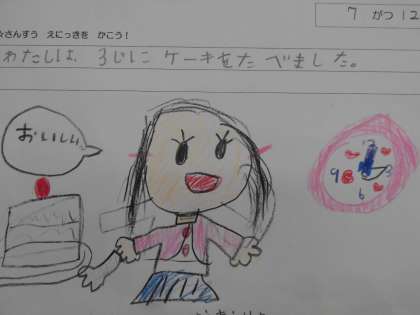 7 がつ 12
☆さんすう えにっきを かこう!
わたしは、3じに ケーキをたべました。
おいしい
12
9 3
6